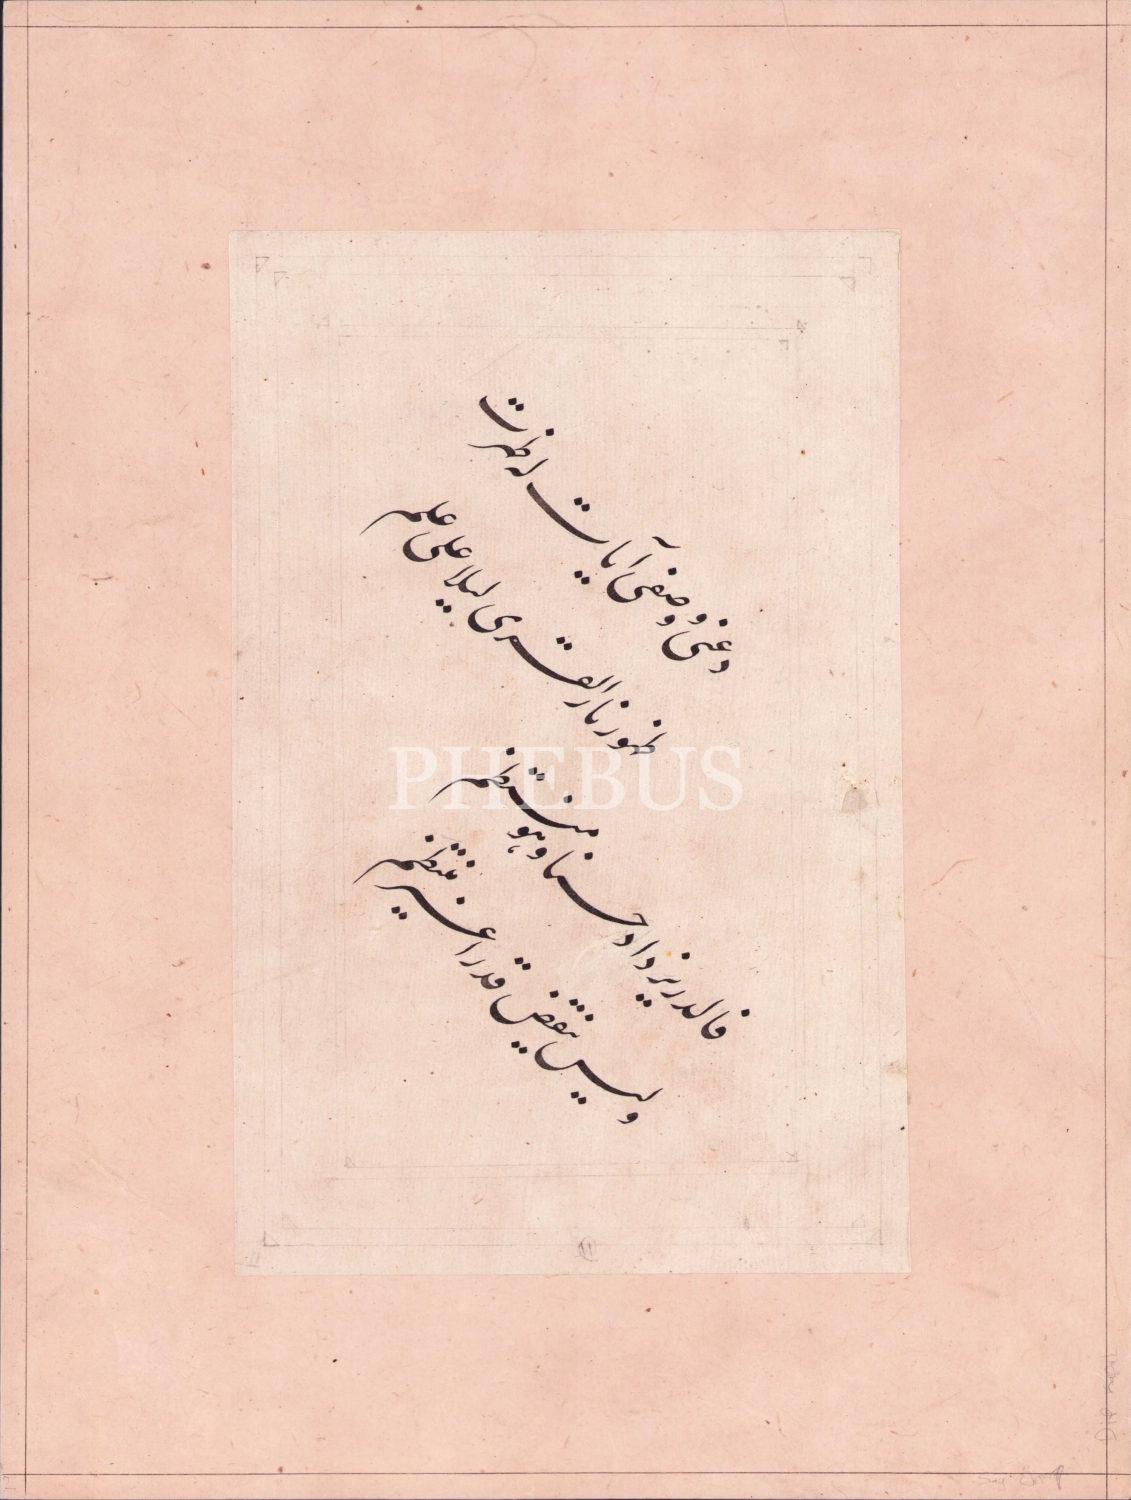 دعنی و وصفی آیات له ظهرت
ظهور نار القری لیلا علی علم
فالدر یزداد حسنا و هو منتظم
ولیس ینقص قدرا غیر منتظم
PHEBUS